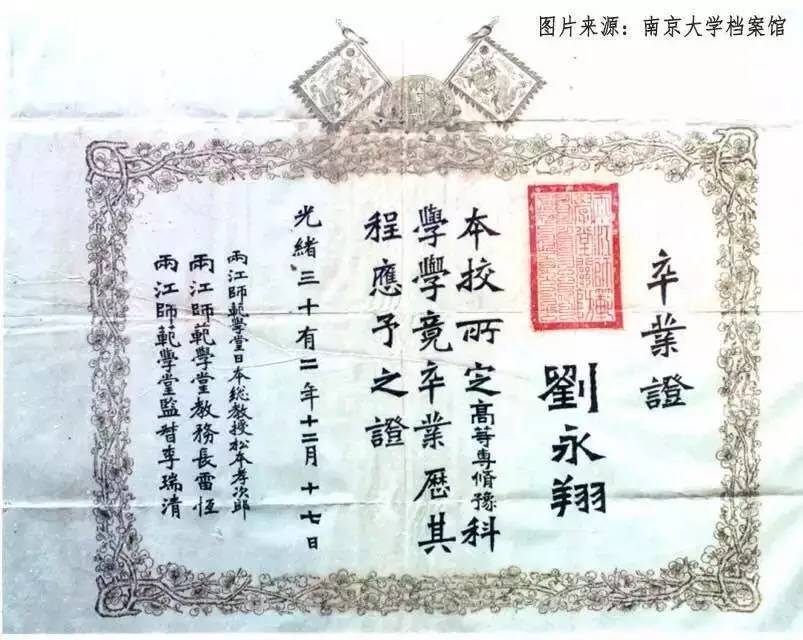 图片来源：南京大学档案馆
卒業證
劉永翔
本挍所定高等專脩豫科
學學竟卒業歷其
程應予之證
光緒三十有二年十二月十七日
兩江師範學堂日本總教授松本孝次郎
兩江師範學堂教務長雷恆
兩江師範學堂監督李瑞清